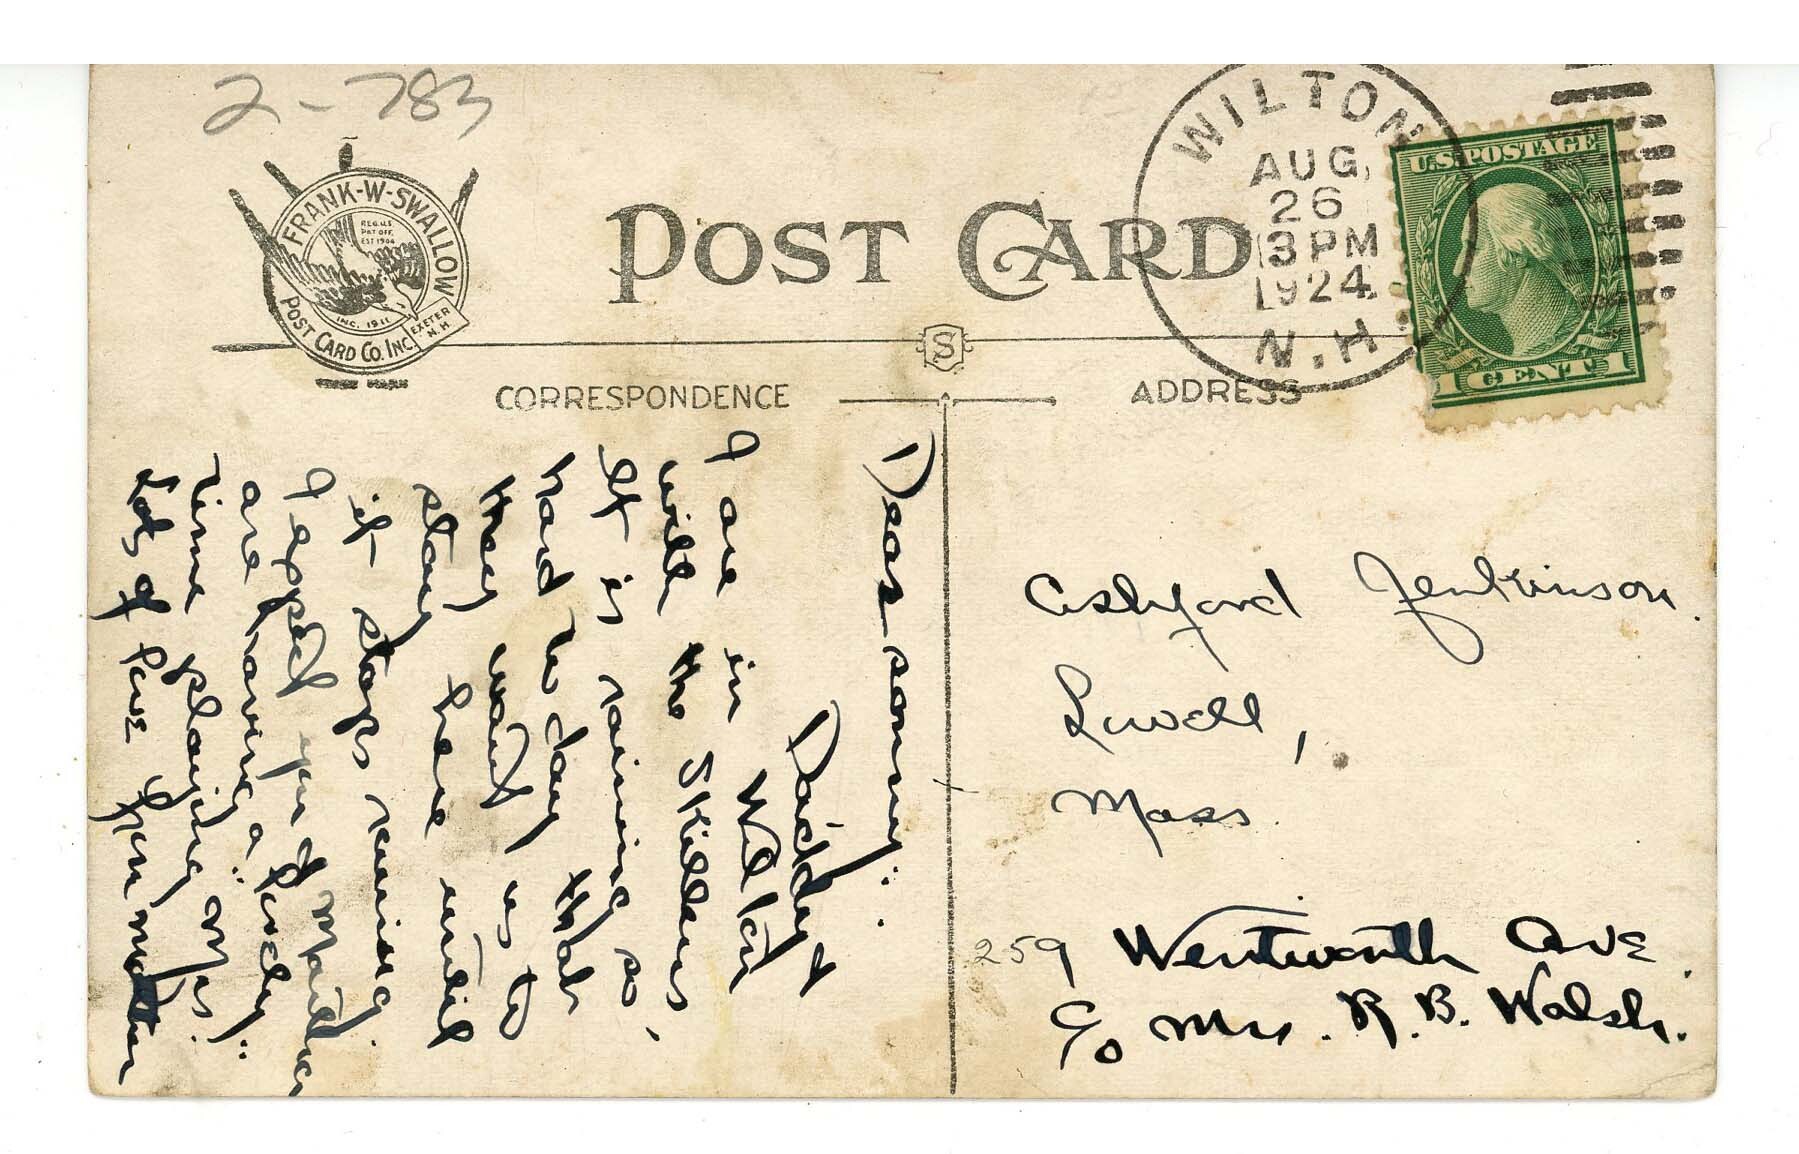 2-783
FRANK-W-SWALLOW
REG.U.S.
PAT OFF.
EST 1904
INC. 1911
EXETER
N.H
POST CARD CO. INC.
POST CARD
WILTON
AUG.
26
3 PM
1924
N.H.
U.S. POSTAGE
1 CENT 1
S
CORRESPONDENCE
ADDRESS
Dear sonny:
Daddy &
I are in Wilton
with the Skillens,
It is raining so
hard to day that
they want us to
stay here until
it stops raining
I expect you & Mailie
are having a lovely
time playing
Lots of love Your mother
Ashford Jenkinson
Lowell,
Mass.
259 Wentworth Ave
c/o Mrs. R. B. Walsh.